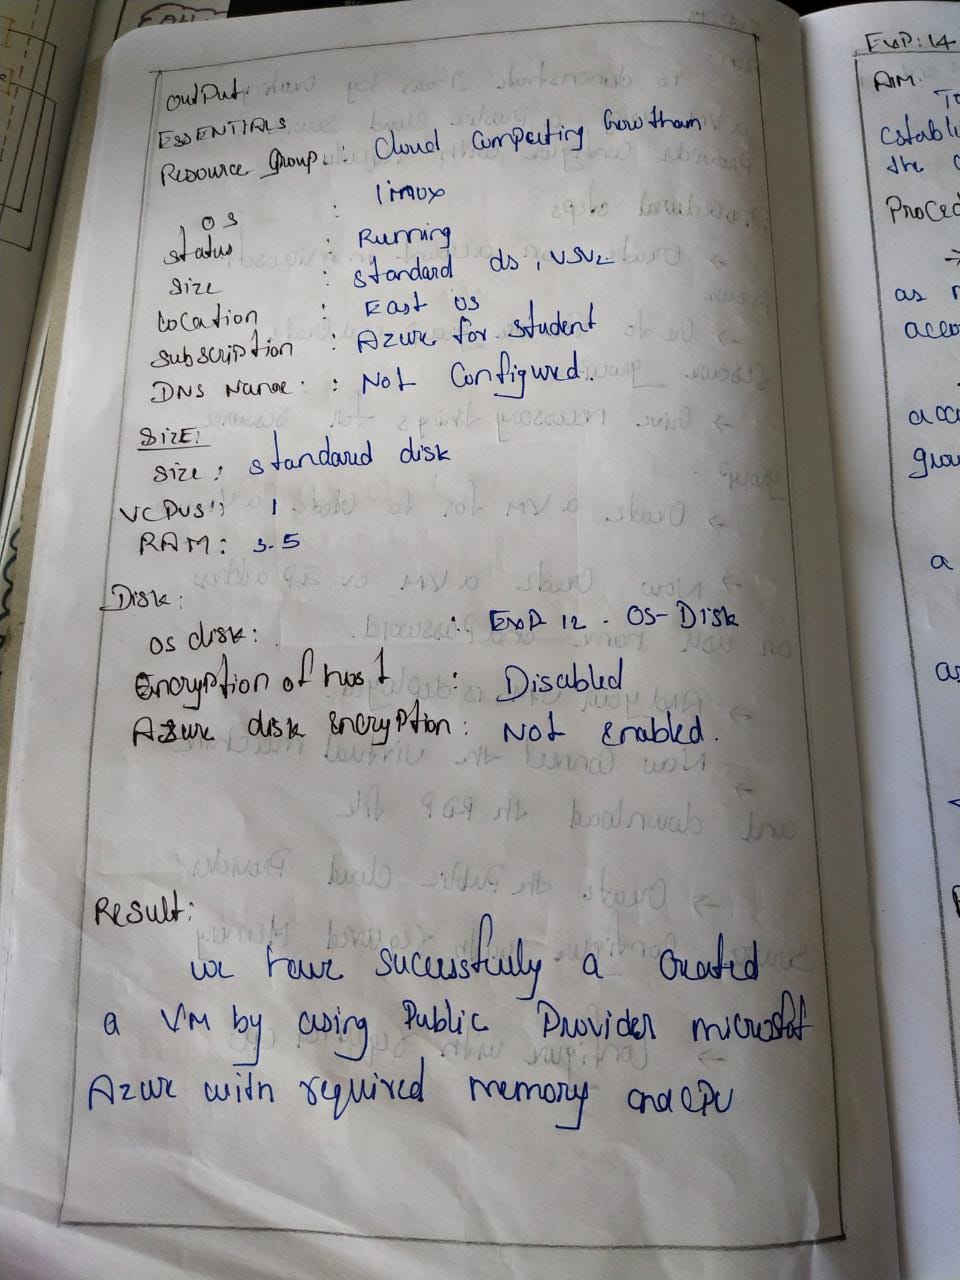 Output:
ESSENTIALS
Resource Group: : Cloud Computing Gowtham
OS : linux
Status : Running
Size : standard ds, vsv2
Location : East US
Subscription : Azure for student
DNS Name: : Not Configured.
SIZE:
Size: standard disk
VCPUS': 1
RAM: 3.5
Disk:
OS disk: : EXP 12 - OS-Disk
Encryption of host : Disabled
Azure disk encryption: Not enabled.
Result:
we have sucessfully a created
a VM by using Public Provider microsoft
Azure with required memory and CPU
EXP: 14
AIM:
To
establi
the
Proced
→
as
acco
acc
grou
a
as